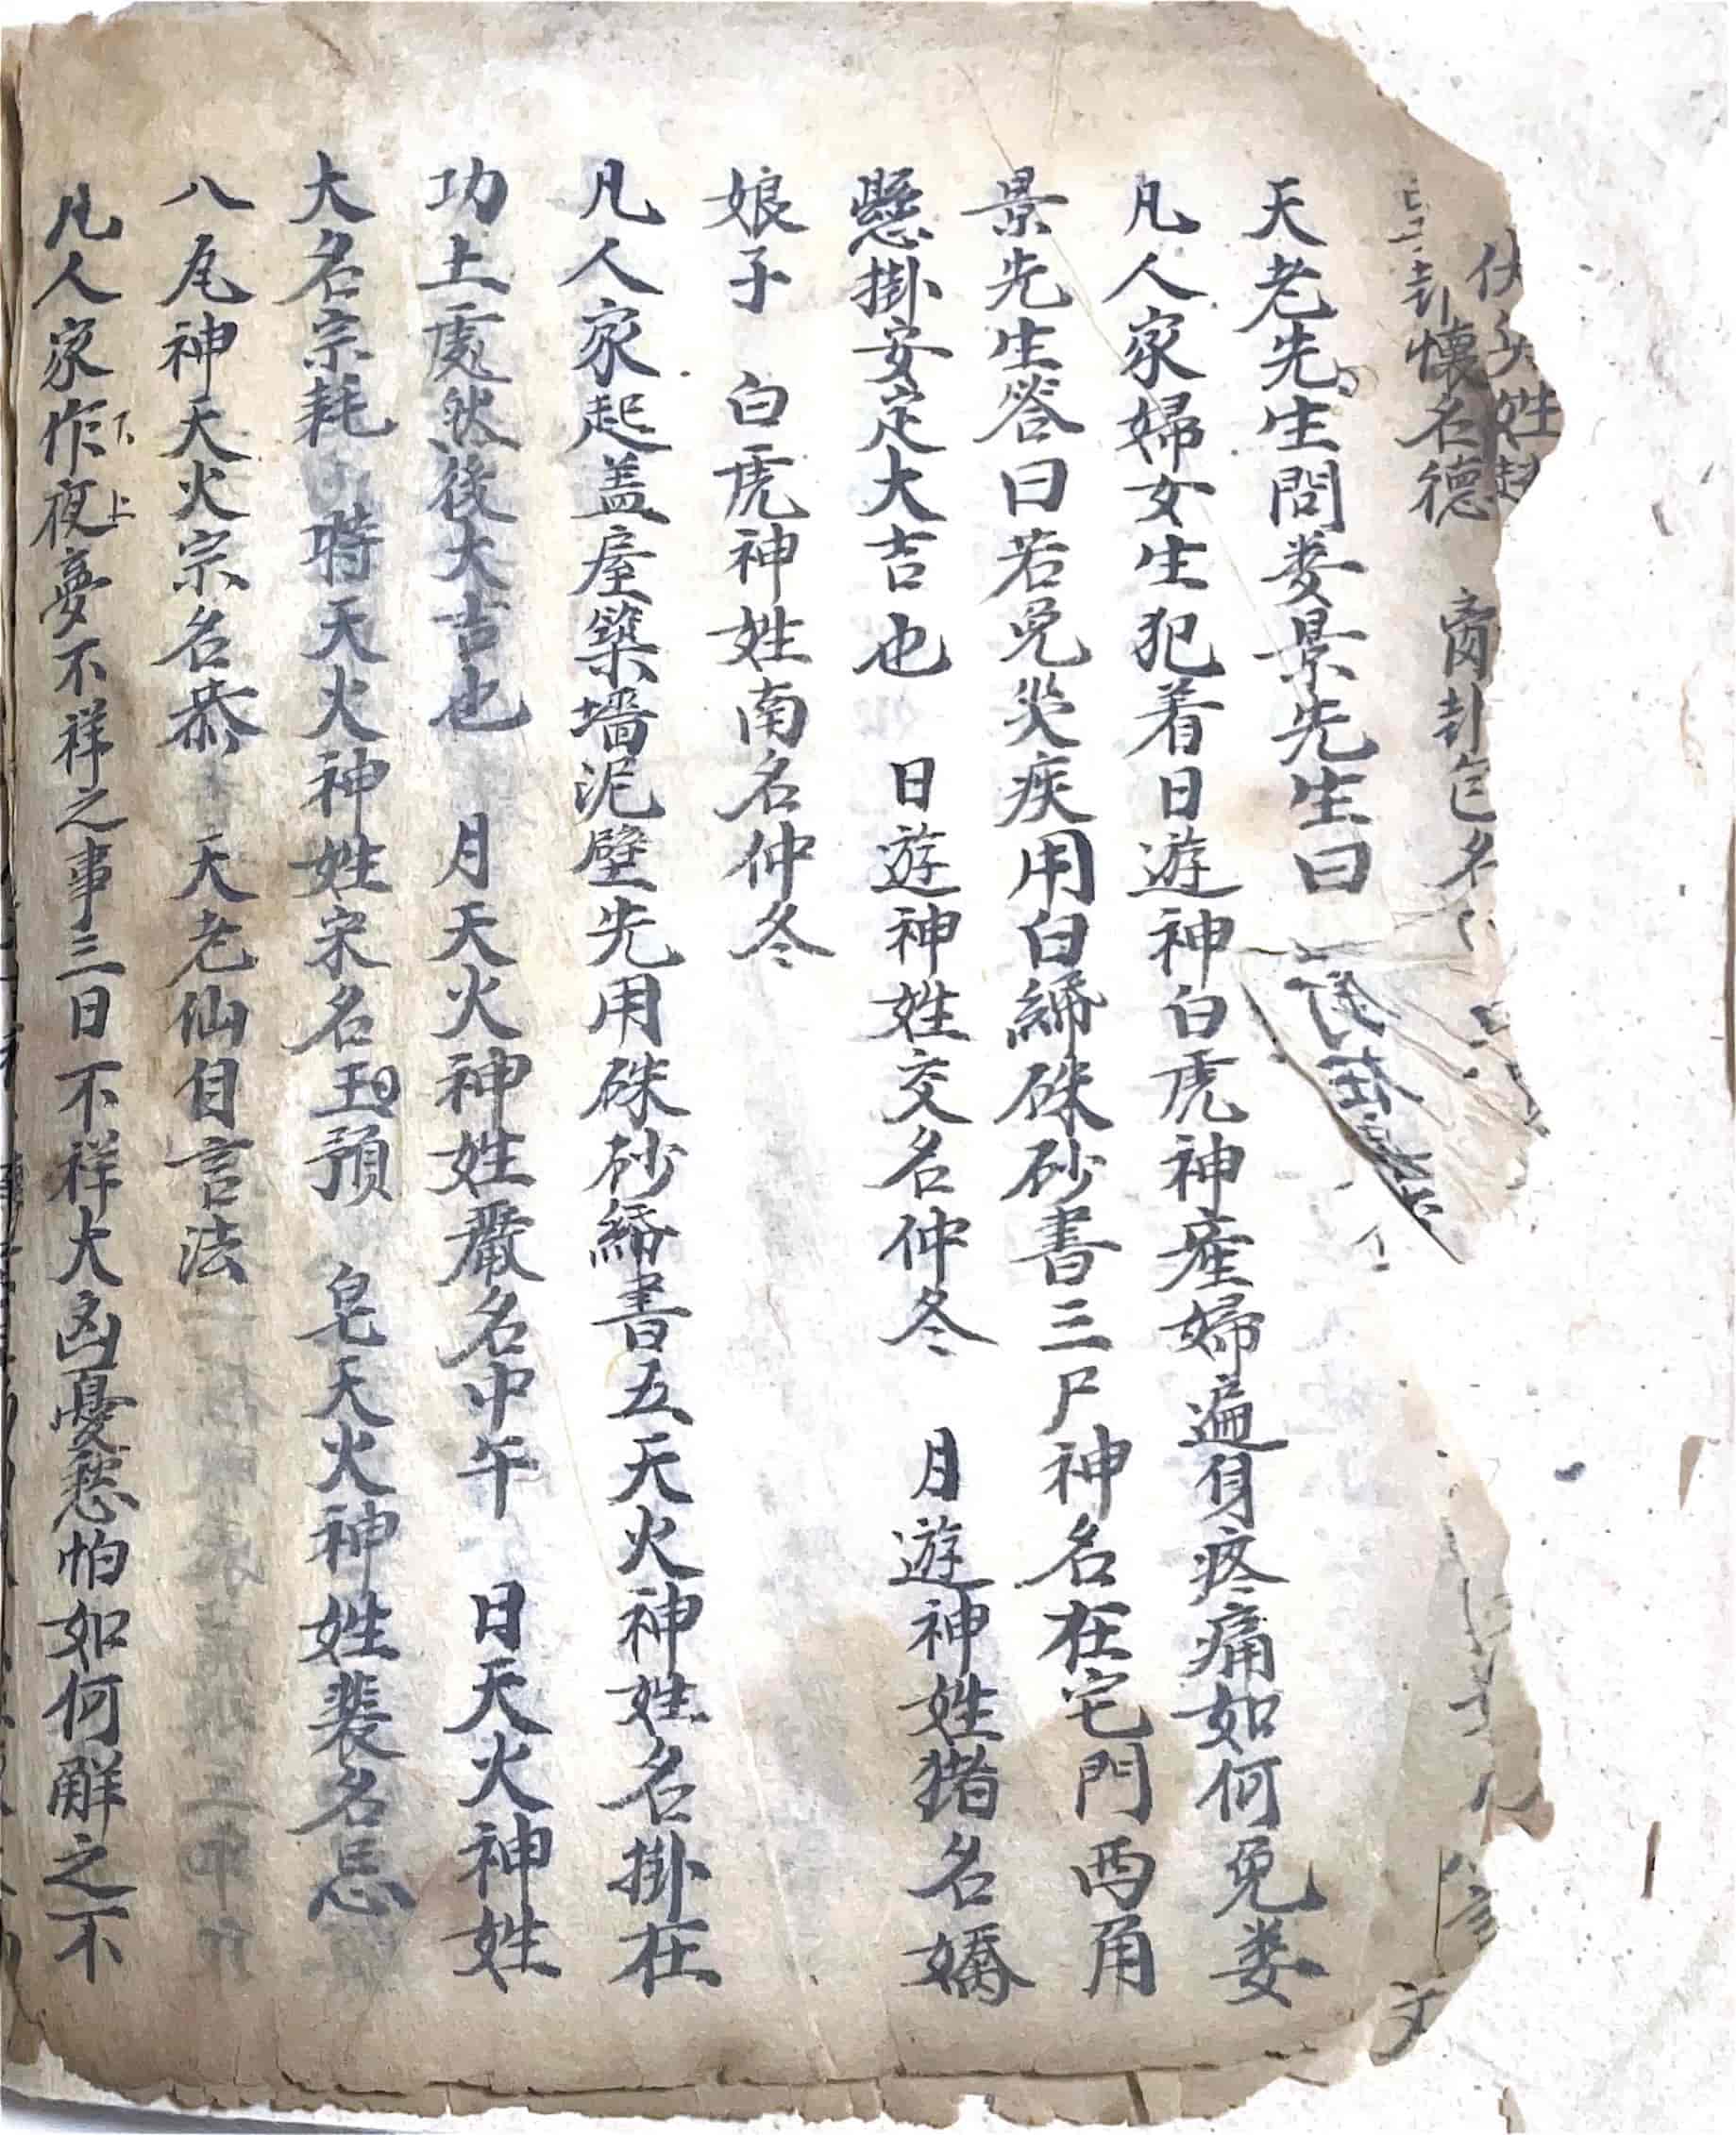 姓
懷名德　卦　名
天老先生問娄景先生曰
凡人家婦女生犯着日遊神白虎神產婦遍身疼痛如何免娄
景先生答曰若免災疾用白綿硃砂書三尸神名在宅門西角
懸掛安定大吉也　日遊神姓交名仲冬　月遊神姓猪名嬌
娘子　白虎神姓南名仲冬
凡人家起盖屋築墻泥壁先用硃砂綿書五天火神姓名掛在
功土處然後大吉也　月天火神姓嚴名中午　日天火神姓
大名宗耗　時天火神姓宋名玉預　皂天火神姓裴名忌
八尾神天火宗名恭　天老仙自言法
凡人家作下夜上夢不祥之事三日不祥大凶憂愁怕如何解之不